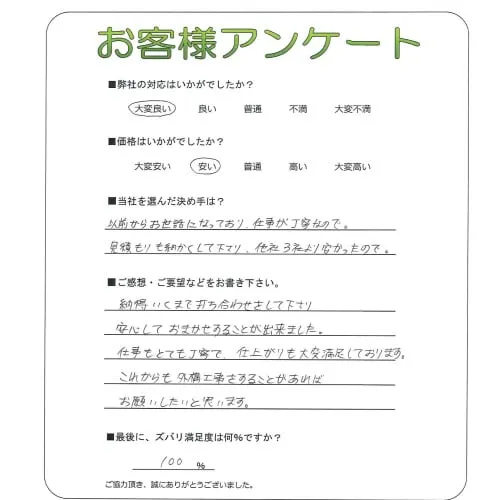 お客様アンケート
■弊社の対応はいかがでしたか？
大変良い 良い 普通 不満 大変不満
■価格はいかがでしたか？
大変安い 安い 普通 高い 大変高い
■当社を選んだ決め手は？
以前からお世話になっており、仕事が丁寧なので。
見積もりも細かくして下さり、他社3社より安かったので。
■ご感想・ご要望などをお書き下さい。
納得いくまで打ち合わせをして下さり
安心しておまかせすることが出来ました。
仕事もとても丁寧で、仕上がりも大変満足しております。
これからも外構工事をすることがあれば
お願いしたいと思います。
■最後に、ズバリ満足度は何%ですか？
100 %
ご協力頂き、誠にありがとうございました。